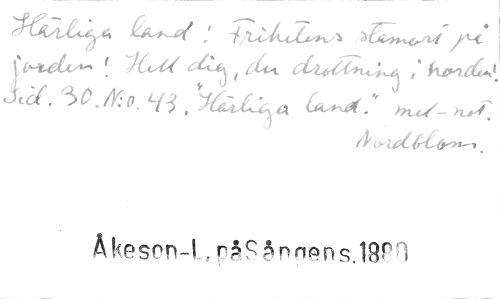 Härliga land! Frihetens stamort på
jorden! Hell dig, du drottning i norden!
Sid. 30. N:o. 43. "Härliga land." mel-not.
Nordblom.
Åkeson-L, påSångens.1880